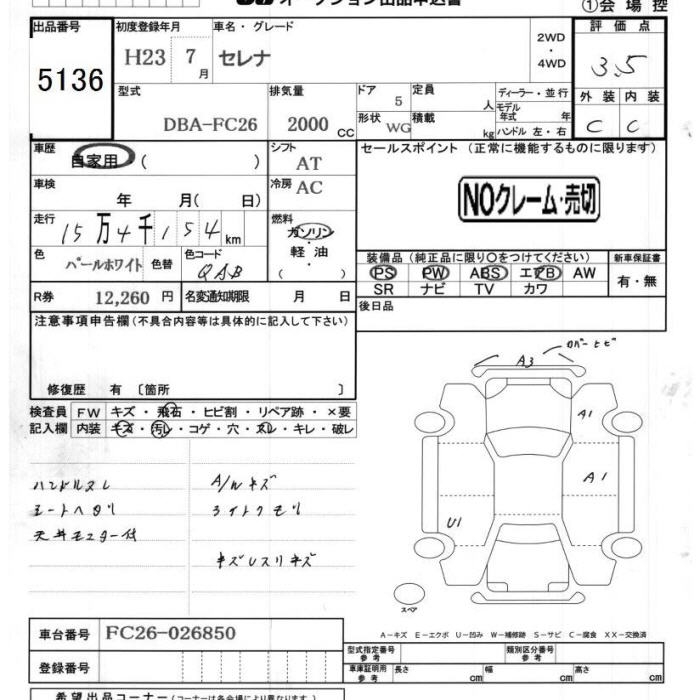 オークション出品申込書
①会場控
出品番号 初度登録年月 車名・グレード 2WD ・ 4WD 評価点
5136 H23 7月 セレナ 3.5
型式 排気量 ドア 5 定員 人 ディーラー・並行 外装 内装
DBA-FC26 2000 CC 形状 WG 積載 kg モデル年式 年 C C
ハンドル 左・右
車歴 自家用 ( ) シフト AT セールスポイント (正常に機能するものに限ります)
車検 年 月( 日) 冷房 AC
NOクレーム・売切
走行 15万4千154km 燃料 ガソリン・軽油 ( )
色 パールホワイト 色替 色コード QAB
装備品 (純正品に限り○をつけてください) 新車保証書
PS PW ABS エアB AW 有・無
SR ナビ TV カワ
R券 12,260 円 名変通知期限 月 日
後日品
注意事項申告欄 (不具合内容等は具体的に記入して下さい)
修復歴 有 〔箇所 〕
検査員 FW キズ・飛石・ヒビ割・リペア跡・×要
記入欄 内装 キズ・汚レ・コゲ・穴・スレ・キレ・破レ
カバーヒビ
A3
A1
A1
U1
ハンドルスレ A/Wキズ
シートヘタリ ライトクモリ
天井モニター付
キズレスリキズ
スペア
A-キズ E-エクボ U-凹み W-補修跡 S-サビ C-腐食 XX-交換済
車台番号 FC26-026850
型式指定番号 参考 類別区分番号 参考
登録番号
車庫証明用 参考 長さ cm 幅 cm 高さ cm
希望出品コーナー (コーナーは各会場により異なります)